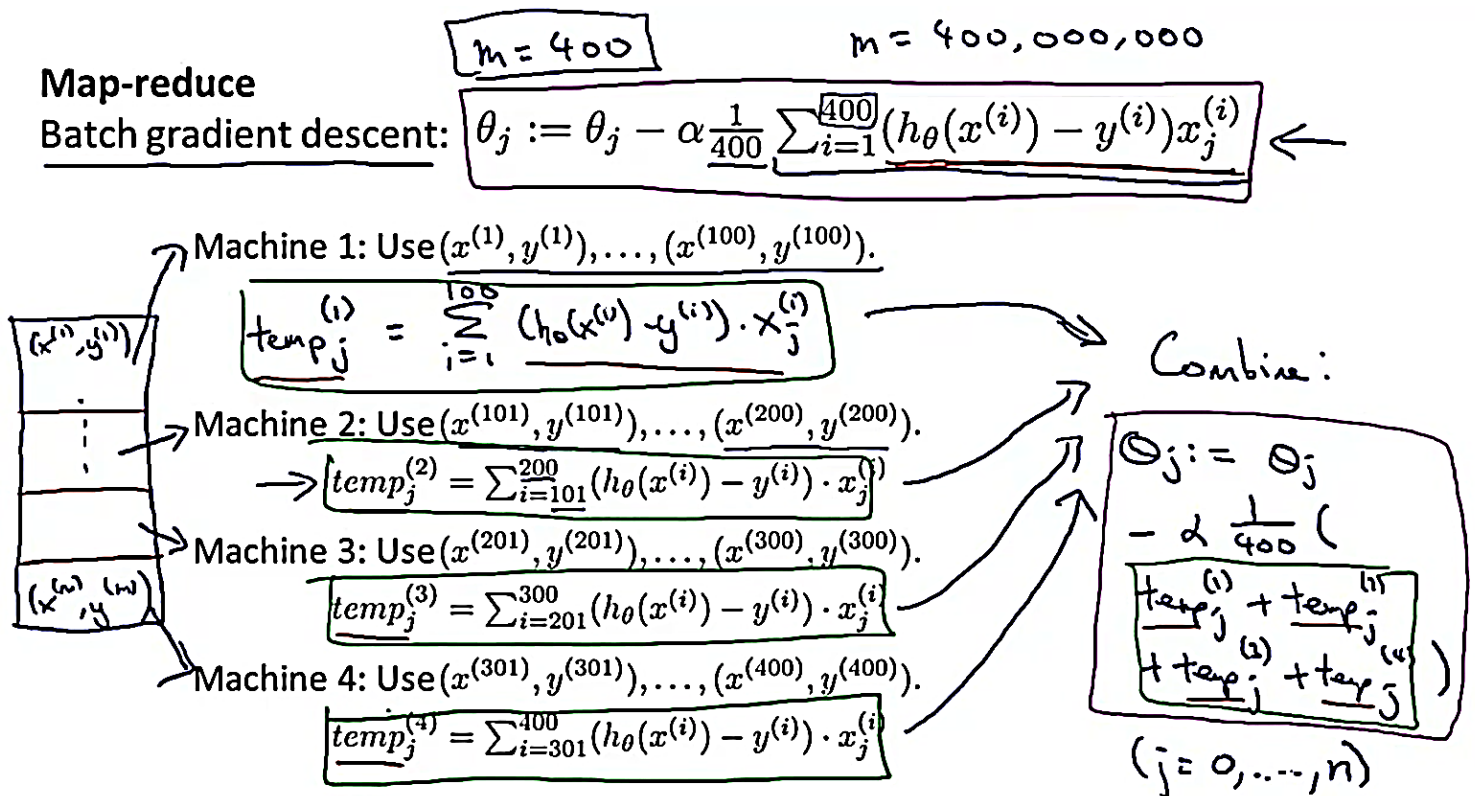 m = 400
m = 400,000,000
Map-reduce
Batch gradient descent: θ_j := θ_j − α 1/400 ∑_{i=1}^{400} (h_θ(x^{(i)}) − y^{(i)}) x_j^{(i)}
Machine 1: Use (x^{(1)}, y^{(1)}), . . . , (x^{(100)}, y^{(100)}).
temp_j^{(1)} = ∑_{i=1}^{100} (h_θ(x^{(i)}) - y^{(i)}) · x_j^{(i)}
(x^{(1)}, y^{(1)})
Machine 2: Use (x^{(101)}, y^{(101)}), . . . , (x^{(200)}, y^{(200)}).
temp_j^{(2)} = ∑_{i=101}^{200} (h_θ(x^{(i)}) − y^{(i)}) · x_j^{(i)}
Machine 3: Use (x^{(201)}, y^{(201)}), . . . , (x^{(300)}, y^{(300)}).
temp_j^{(3)} = ∑_{i=201}^{300} (h_θ(x^{(i)}) − y^{(i)}) · x_j^{(i)}
(x^{(m)}, y^{(m)})
Machine 4: Use (x^{(301)}, y^{(301)}), . . . , (x^{(400)}, y^{(400)}).
temp_j^{(4)} = ∑_{i=301}^{400} (h_θ(x^{(i)}) − y^{(i)}) · x_j^{(i)}
Combine:
θ_j := θ_j
− α 1/400 (
temp_j^{(1)} + temp_j^{(2)}
+ temp_j^{(3)} + temp_j^{(4)} )
(j = 0, ...., n)